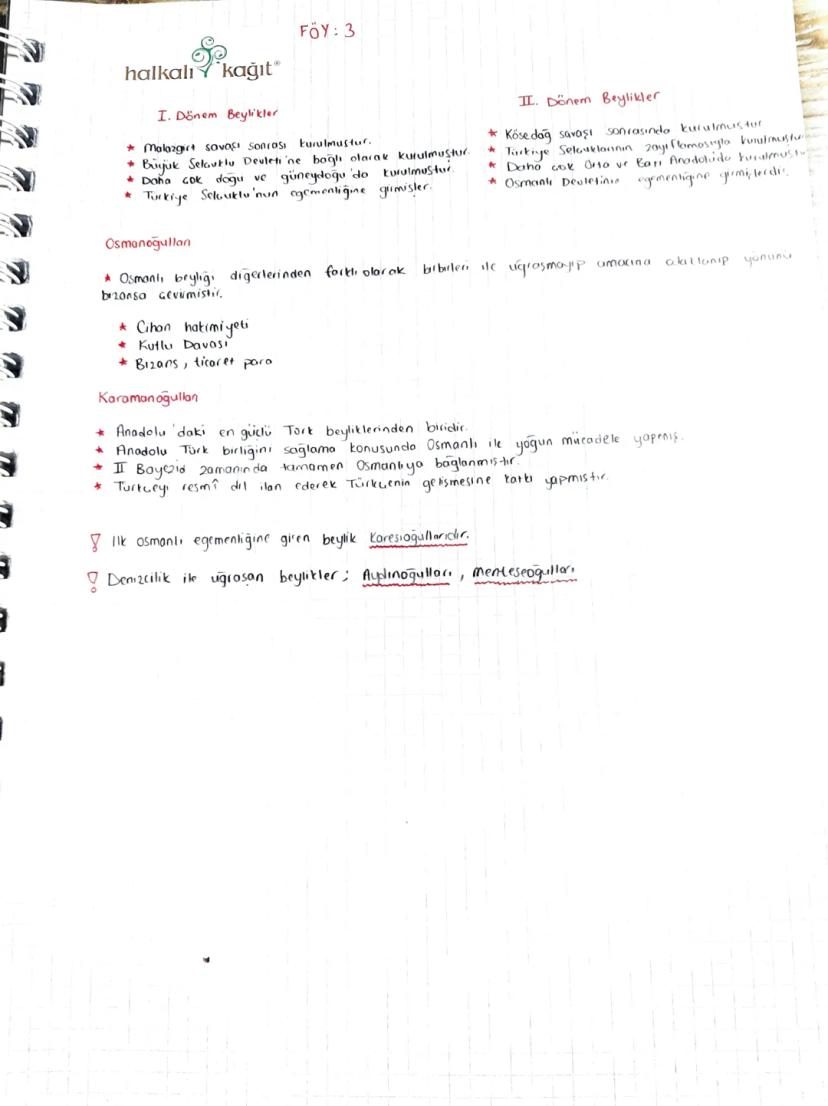 FÖY: 3
halkalı kağıt®
I. Dönem Beylikler
★ Malazgirt savaşı sonrası kurulmuştur.
★ Büyük Selçuklu Devleti'ne bağlı olarak kurulmuştur.
★ Daha çok doğu ve güneydoğu'da kurulmuştur.
★ Türkiye Selçuklu'nun egemenliğine girmişler.
II. Dönem Beylikler
★ Kösedağ savaşı sonrasında kurulmuştur
★ Türkiye Selçuklarının zayıflamasıyla kurulmuştu
★ Daha çok Orta ve Batı Anadolu'da kurulmuştu
★ Osmanlı Devletinin egemenliğine girmişlerdir.
Osmanoğulları
★ Osmanlı beyliği diğerlerinden farklı olarak birbirleri ile uğraşmayıp amacına odaklanıp yönünü
bizansa çevirmiştir.
★ Cihan hakimiyeti
★ Kutlu Davası
★ Bizans, ticaret para
Karamanoğulları
★ Anadolu'daki en güçlü Türk beyliklerinden biridir.
★ Anadolu Türk birliğini sağlama konusunda Osmanlı ile yoğun mücadele yapmış.
★ II Bayezid zamanında tamamen Osmanlıya bağlanmıştır.
★ Türkçeyi resmî dil ilan ederek Türkçenin gelişmesine katkı yapmıştır.
! İlk osmanlı egemenliğine giren beylik Karesioğullarıdır.
! Denizcilik ile uğraşan beylikler; Aydınoğulları, Menteşeoğulları